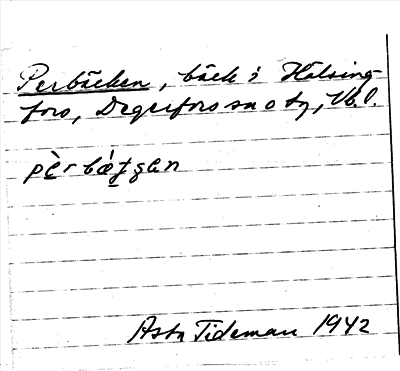 Perbäcken, bäck i Hälsing-
fors, Degerfors sn o tg, Vb.l.
pèrbátjan
Asta Tideman 1942